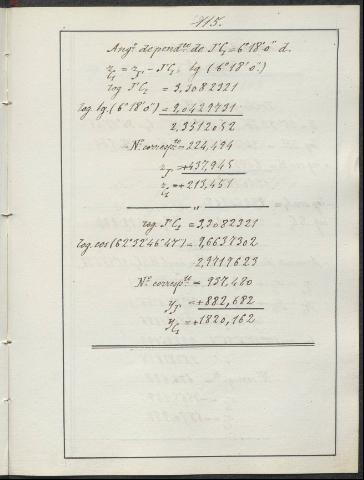 115.
Ang.º depend.te de I'C₁ = 6°18'0" d.
z_C₁ = z_I' - I'C₁ tg (6°18'0")
log I'C₁ = 3,3082321
log tg. (6°18'0") = 9,0429731
2,3512052
N.º corresp.te = 224,494
z_I' = +437,945
z_C₁ = +213,451
"
log I'C₁ = 3,3082321
log cos (62°32'46"47") = 9,6637302
2,9719623
N.º corresp.te = 937,480
y_I' = +882,682
y_C₁ = +1820,162